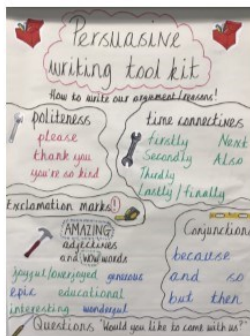 Persuasive
writing tool kit
How to write our argument/reasons!
politeness
please
thank you
you're so kind
time connectives
firstly Next
Secondly Also
Thirdly
lastly/finally
Exclamation marks!
AMAZING
adjectives
and wow words
joyful/overjoyed generous
epic educational
interesting wonderful
Conjunction
because
and so
but then
Questions "Would you like to come with us"